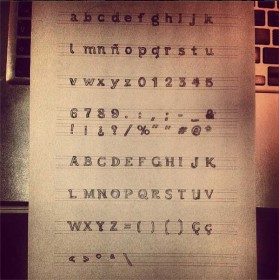 a b c d e f g h i j k
l m n ñ o p q r s t u
v w x y z 0 1 2 3 4 5
6 7 8 9 . : , ; - _ &
! ¡ ¿ ? / % " # @ °
A B C D E F G H I J K
L M N O P Q R S T U V
W X Y Z = ( ) { } Ç ç
< > º ª \